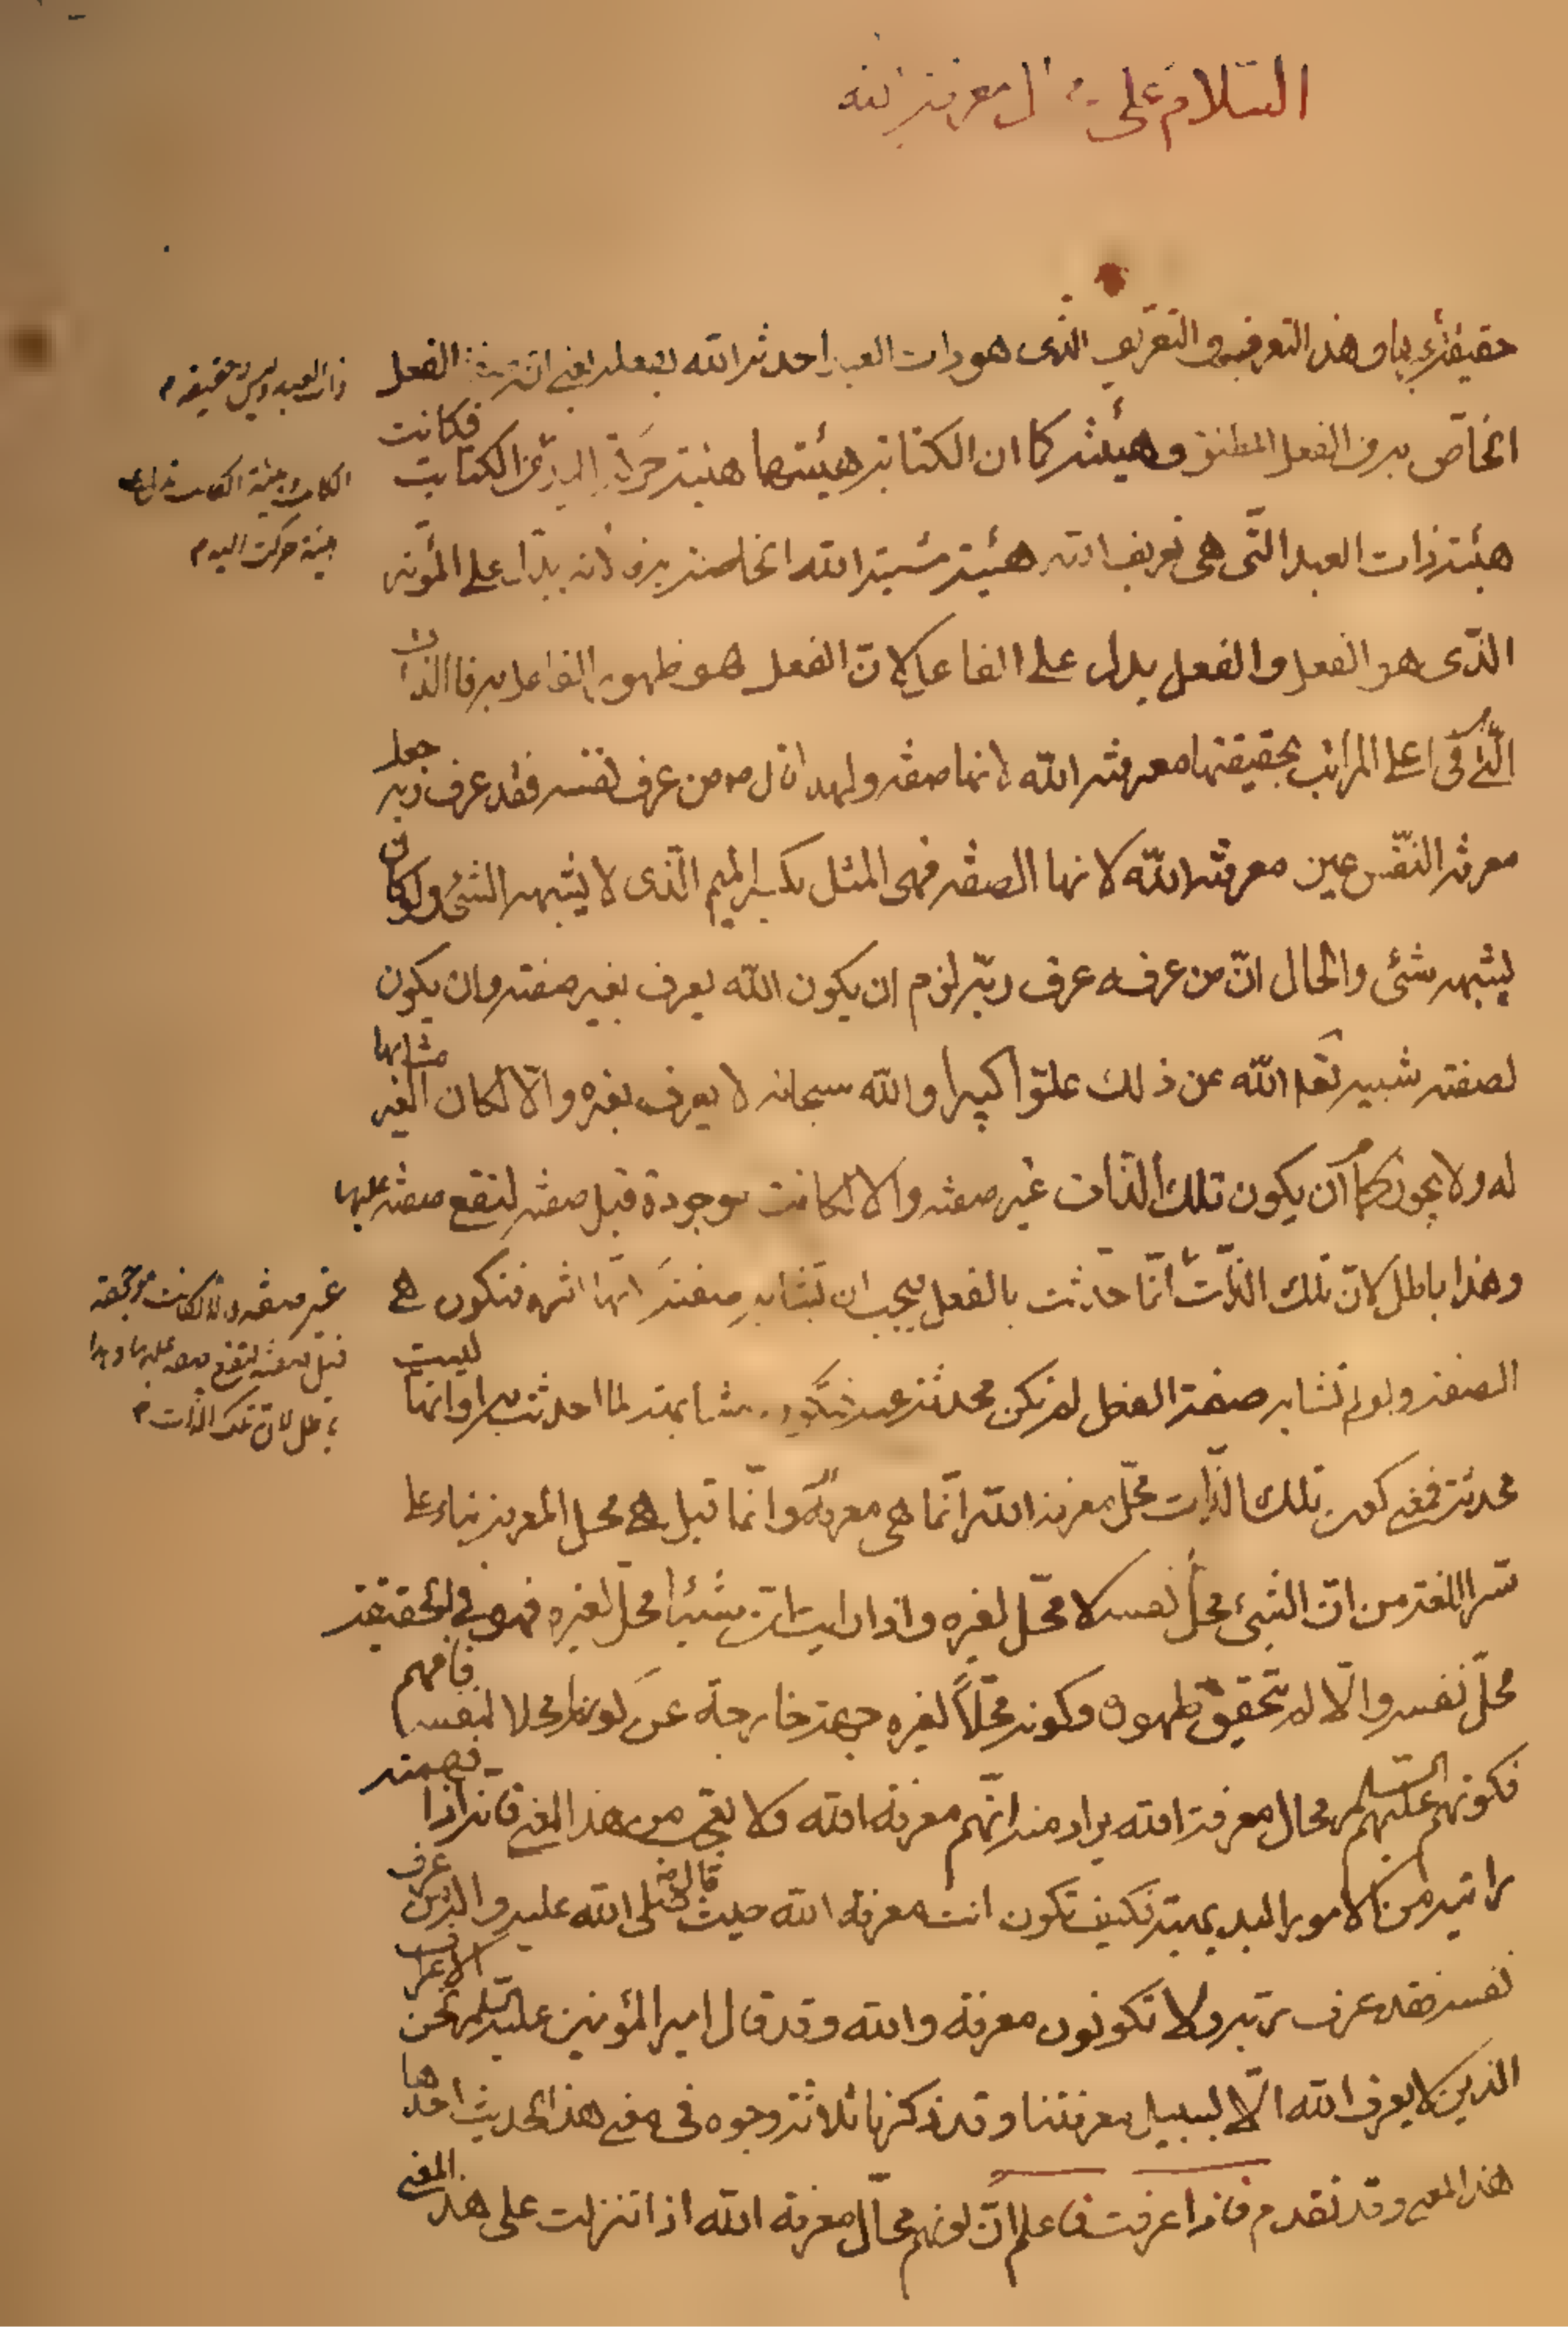 السلام على محال معرفة الله
حقيقة وهذا التعرف والتعريف الذى هو ذات العبد احدثه الله بفعله الفعل
ذات العبد وليس حقيقة م
الخاص به من الفعل المطلق وهيئته كما ان الكتابة هيئتها هيئة حركة اليد من الكتابة فكانت
هيئة حركت اليد م
هيئة ذات العبد التى هى تعريف الله هيئة مشية الله الخاصة به لانه يدل على المؤثر
الذى هو الفعل والفعل يدل على الفاعل لان الفعل هو ظهور الفاعل به فالذات
التى فى اعلى المراتب بحقيقتها معرفة الله لانها صفته ولهذا قال ص من عرف نفسه فقد عرف ربه جعل
معرفة النفس عين معرفة الله لانها الصفة فهى المثل بكسر الميم الذى لا يشبهه الشئ ولو كان
يشبهه شئ والحال ان من عرفه عرف ربه لزم ان يكون الله يعرف بغير صفته وان يكون
لصفته شبيه تعالى الله عن ذلك علوا كبيرا والله سبحانه لا يعرف بغيره والا لكان الغير مشابها
له ولا يجوز ان يكون تلك الذات غير صفته والا لكانت موجودة قبل صفته لتقع صفته عليها
وهذا باطل لان تلك الذات انما حدثت بالفعل فيجب ان تشابه صفته انها اثره فتكون هى
غير صفته والا لكانت موجودة
قبل صفته لتقع صفته عليها وهذا
باطل لان تلك الذات م
الصفة ولو لم تشابه صفة الفعل لم تكن محدثة عنه فتكون مشابهة لما احدثت به وانها ليست
محدثة فمعنى كون تلك الذات محل معرفة الله انما هى معرفة وانما قيل هى محل المعرفة بناء على
سر اللغة من ان الشئ محل نفسه لا محل لغيره واذا رايت شيئا محل لغيره فهو فى الحقيقة
محل نفسه والا لم يتحقق ظهوره وكونه محلا لغيره جهة خارجة عن كونه محلا لنفسه فافهم
فكونهم عليهم السلام محال معرفة الله يراد منه انهم معرفة الله ولا هذا المعنى فانه اذا فهمته
رايته من الامور البديهية فكيف تكون انت معرفة الله حيث قال صلى الله عليه واله من عرف
نفسه فقد عرف ربه ولا تكونون معرفة والله وقد قال امير المؤمنين عليه السلم نحن الاعراف
الذين لا يعرف الله الا بسبيل معرفتنا وقد ذكرنا ثلاثة وجوه فى معنى هذا الحديث احدها
هذا المعنى وقد تقدم فاذا عرفت فاعلم ان كونهم محال معرفة الله اذا تنزلت على هذا المعنى